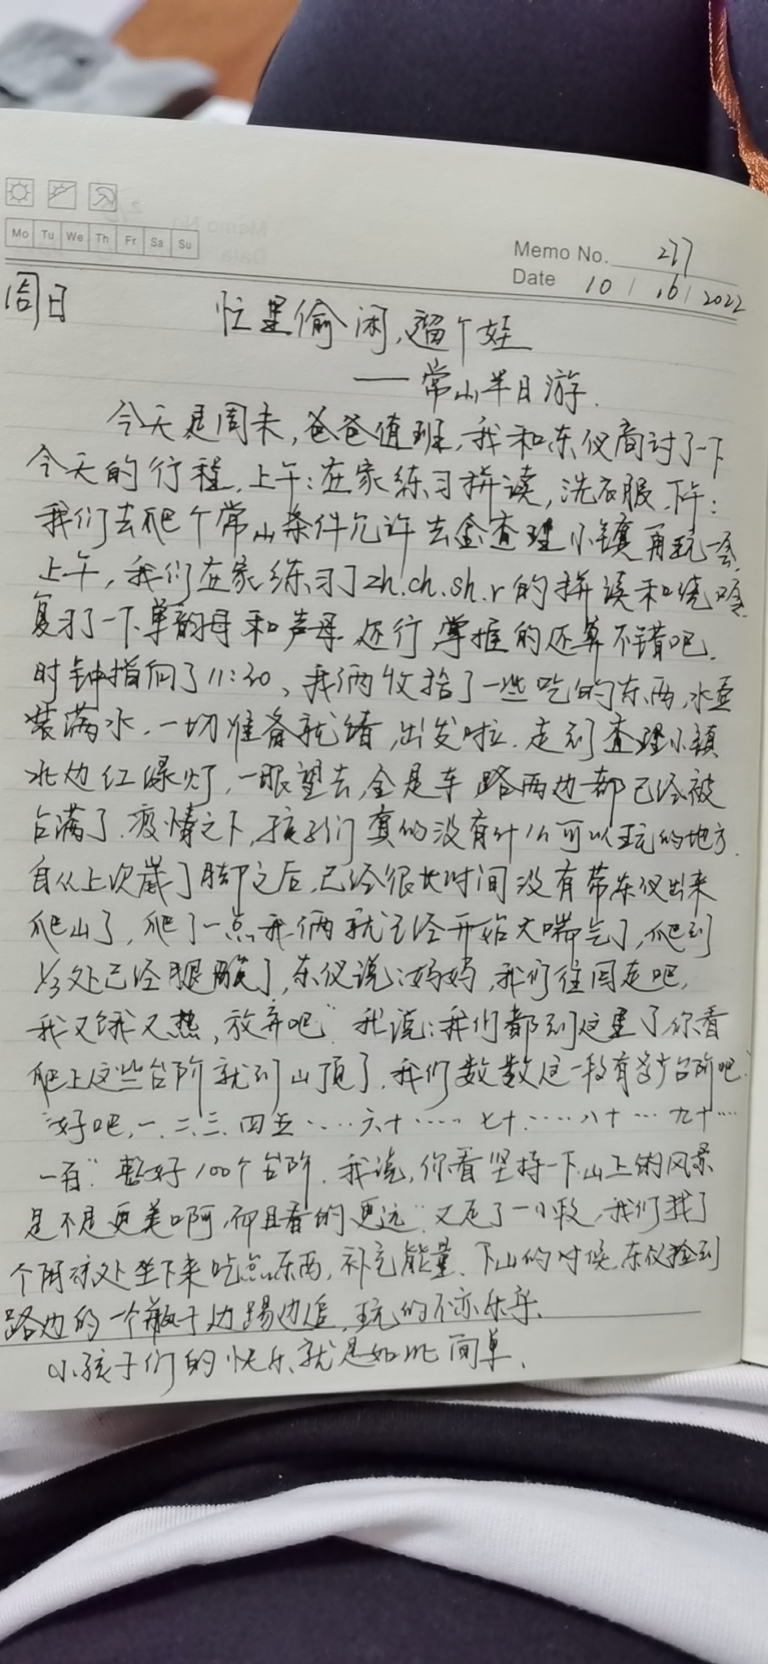 Mo Tu We Th Fr Sa Su
Memo No. 277
Date 10 / 16 / 2022
周日 忙里偷闲，遛个娃
——常山半日游.
今天是周末，爸爸值班，我和东仪商讨了一下
今天的行程，上午：在家练习拼读，洗衣服，下午：
我们去爬个常山条件允许去查理小镇再玩一会，
上午，我们在家练习了zh.ch.sh.r的拼读和
复习了一下单韵母和声母，还行，掌握的还算不错吧.
时钟指向了11:30，我俩收拾了一些吃的东西，水壶
装满水，一切准备就绪，出发啦.走到查理小镇
北边红绿灯，一眼望去，全是车 路两边都已经被
占满了.疫情之下，孩子们真的没有什么可以玩的地方.
自从上次崴了脚之后，已经很长时间没有带东仪出来
爬山了，爬了一点我俩就已经开始大喘气了，爬到
1/3处已经腿酸了，东仪说：妈妈，我们往回走吧，
我又饿又热，放弃吧”我说：我们都到这里了你看
爬上这些台阶就到山顶了，我们数数这一段有多少台阶吧”
“好吧，一、二、三、四五……六十……七十……八十…九十…
一百”整好100个台阶.我说，你看坚持一下山上的风景
是不是更美啊，而且看的更远”又走了一小段，我们找了
个阴凉处坐下来吃点东西，补充能量.下山的时候，东仪捡到
路边的一个瓶子边踢边追，玩的不亦乐乎.
小孩子们的快乐就是如此简单.